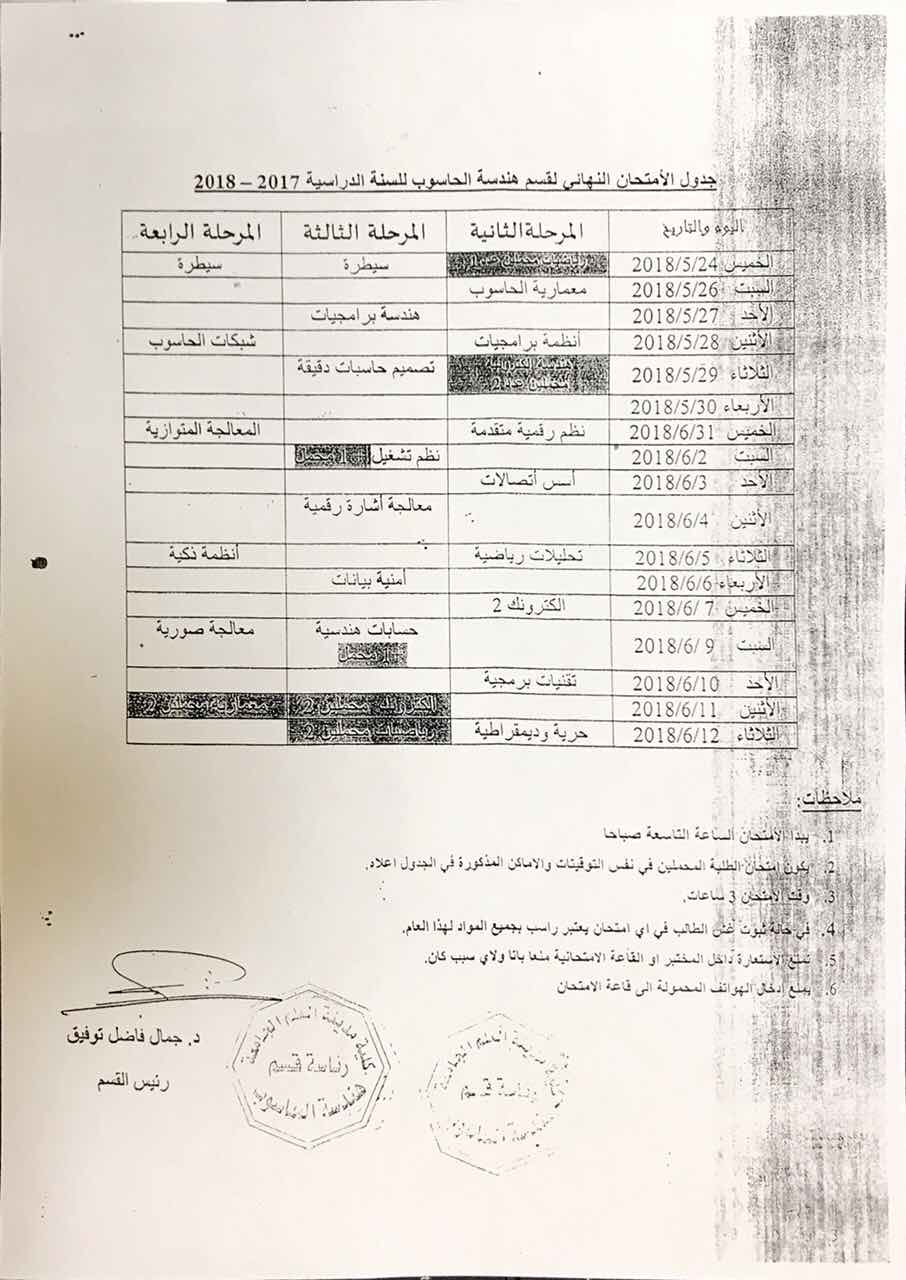 جدول الأمتحان النهائي لقسم هندسة الحاسوب للسنة الدراسية 2017 – 2018
اليوم والتاريخ المرحلة الثانية المرحلة الثالثة المرحلة الرابعة
الخميس 2018/5/24 سيطرة سيطرة
السبت 2018/5/26 معمارية الحاسوب
الأحد 2018/5/27 هندسة برامجيات
الأثنين 2018/5/28 أنظمة برامجيات شبكات الحاسوب
الثلاثاء 2018/5/29 تصميم حاسبات دقيقة
الأربعاء 2018/5/30
الخميس 2018/6/31 نظم رقمية متقدمة المعالجة المتوازية
السبت 2018/6/2 نظم تشغيل
الأحد 2018/6/3 أسس أتصالات
الأثنين 2018/6/4 معالجة أشارة رقمية
الثلاثاء 2018/6/5 تحليلات رياضية أنظمة ذكية
الأربعاء 2018/6/6 أمنية بيانات
الخميس 2018/6/ 7 الكترونك 2
السبت 2018/6/ 9 حسابات هندسية معالجة صورية
الأحد 2018/6/10 تقنيات برمجية
الأثنين 2018/6/11 الكترونك محملين 2 معمارية محملين 2
الثلاثاء 2018/6/12 حرية وديمقراطية رياضيات محملين 2
ملاحظات:
1. يبدا الامتحان الساعة التاسعة صباحا
2. يكون امتحان الطلبة المحملين في نفس التوقيتات والاماكن المذكورة في الجدول اعلاه.
3. وقت الامتحان 3 ساعات.
4. في حالة ثبوت غش الطالب في اي امتحان يعتبر راسب بجميع المواد لهذا العام.
5. تمنع الاستعارة داخل المختبر او القاعة الامتحانية منعا باتا ولاي سبب كان.
6. يمنع إدخال الهواتف المحمولة الى قاعة الامتحان
د. جمال فاضل توفيق
رئيس القسم
كلية مدينة العلم الجامعة
رئاسة قسم
هندسة الحاسوب
كلية مدينة العلم الجامعة
رئاسة قسم
هندسة الحاسوب